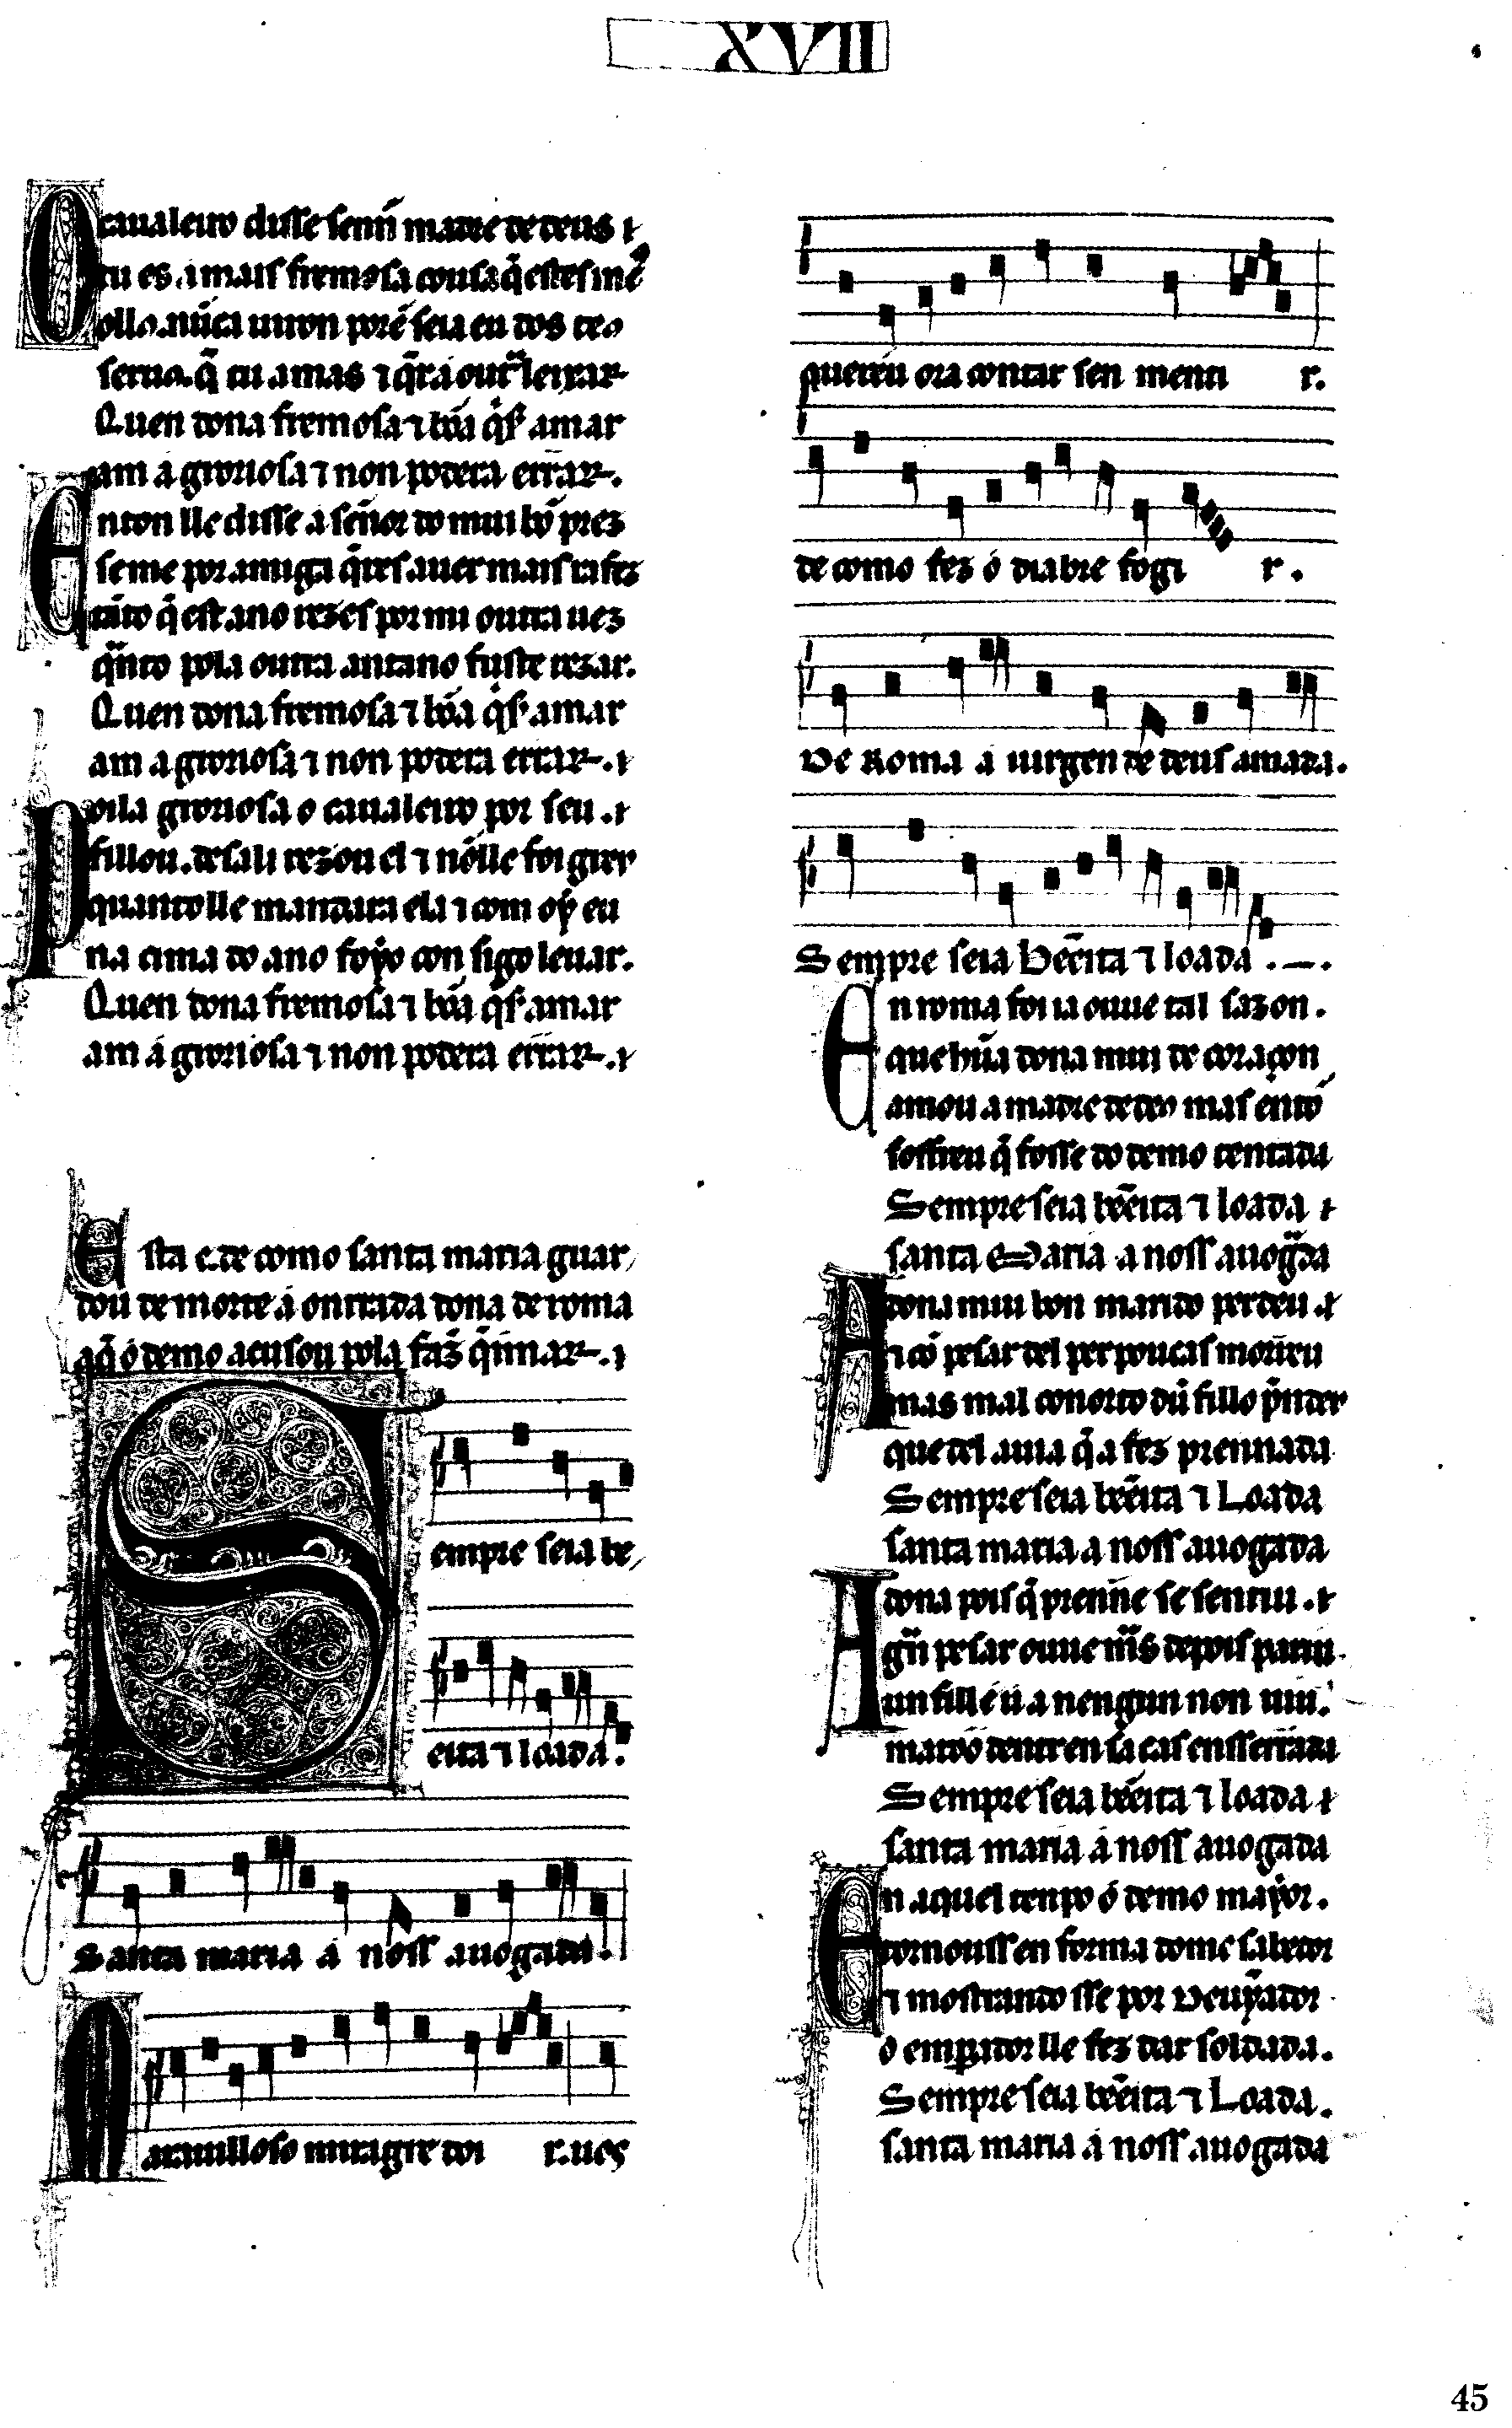 XVII
O caualeiro disse sennͬ madre de deus ⁊
tu es a mais fremosa cousa q̄ estes me9
ollos nūca uiron porē seia eu dos teos
seruos q̄ tu amas ⁊ q̄rá outͬ leixar
Quen dona fremosa ⁊ bōa q̇s amar
am a groriosa ⁊ non poderá errar.
Enton lle disse a sen̄or do mui bō prez
se me por amiga q̄res auer mais rafez
tāto q̄ est ano rezes por mi outra uez
qͣnto pola outra antano fuste rezar.
Quen dona fremosa ⁊ bōa q̇s amar
am a groriosa ⁊ non poderá errar.
Poila groriosa o caualeiro por seu.
fillou. desali rezou el ⁊ nōlle foi greu
quantolle mandara ela ⁊ com oẏ eu
na cima do ano foyo con sigo leuar.
Quen dona fremosa ⁊ bōa q̇s amar
am á groriosa ⁊ non poderá errar.
Esta e de como santa maria guar
dou de morte á onrrada dona de roma
a q̄ ó demo acusou pola faz̄ q̇imar.
Sempre seia be
eita ⁊ loada.
Santa maria á noss auogada.
Marauilloso miragre doi r. ues
quereu ora contar sen menti r.
de como fez ó diabre fogi r.
De Roma a uirgen de deus amada.
Sempre seia bēeita ⁊ loada.
En roma foi ia ouue tal sazon.
que hūa dona mui de coraçon
amou a madre de deus mas entō
soffreu q̄ fosse do demo tentada
Sempre seia bēeita ⁊ loada
santa Maria a noss auogͣda
A dona mui bon marido perdeu.
⁊ cō pesar del per poucas morreu
mas mal conorto dū fillo p̄nder
que del auia q̄ a fez prennada
Sempre seia bēeita ⁊ Loada
santa maria a noss auogada
A dona pois q̄ prenne se sentiu.
gͣn pesar ouue mͣs depois pariu
un fill e u a nengun non uiu.
matóo dentr en sa cas ensserrada
Sempre seia bēeita ⁊ loada
santa maria á noss auogada
En aquel tenpo ó demo mayor.
tornouss en forma dome sabedor
⁊ mostrando sse por Deuyn̄ador
ó enperador lle fez dar soldada.
Sempre seia bēeita ⁊ Loada.
santa maria á noss auogada
45